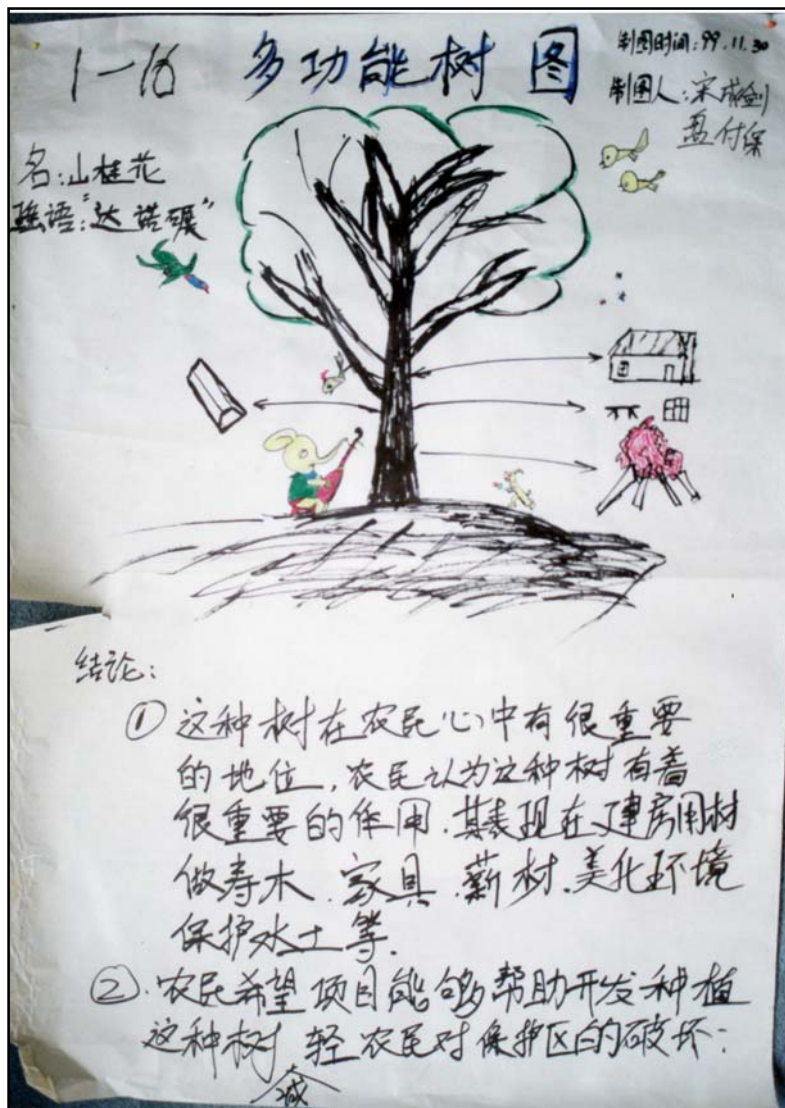 1—16 多功能树 图
制图时间:99.11.30
制图人:宋成剑
盈付保
名:山桂花
瑶语:"达诺碾"
结论:
① 这种树在农民心中有很重要
的地位,农民认为这种树有着
很重要的作用.其表现在建房用材
做寿木.家具.薪材.美化环境
保护水土等.
②.农民希望项目能够帮助开发种植
这种树减轻农民对保护区的破坏: